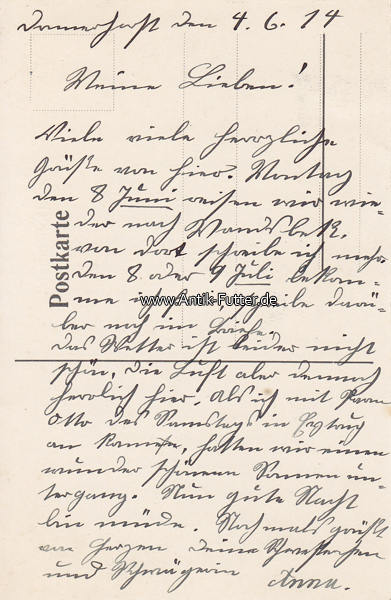 den 4. 6. 14
Meine Lieben!
Viele viele herzliche
Grüße von hier. Montag
den 8 Juni reisen wir wie-
der nach Wandsbek.
von dort schreibe ich mehr.
den 8 oder 9 Juli bekom-
me ich schreibe darü-
ber noch im Briefe.
Das Wetter ist leider nicht
schön, die Luft aber dennoch
herrlich hier. Als ich mit
Otto des Samstags in
an kamen, hatten wir einen
wunder schönen Sonnen un-
tergang. Nun gute Nacht
bin müde. Nochmals grüßt
von Herzen Deine Schwesterchen
und Schwägerin Anna.
Postkarte
www.Antik-Futter.de